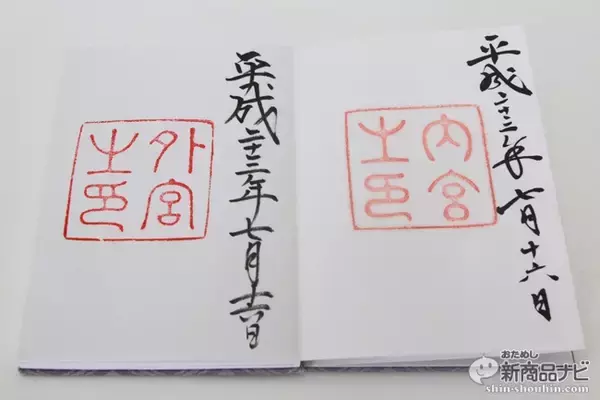 平成二十三年七月十六日
内宮
之印
平成二十三年七月十六日
外宮
之印
おためし
新商品ナビ
shin-shouhin.com